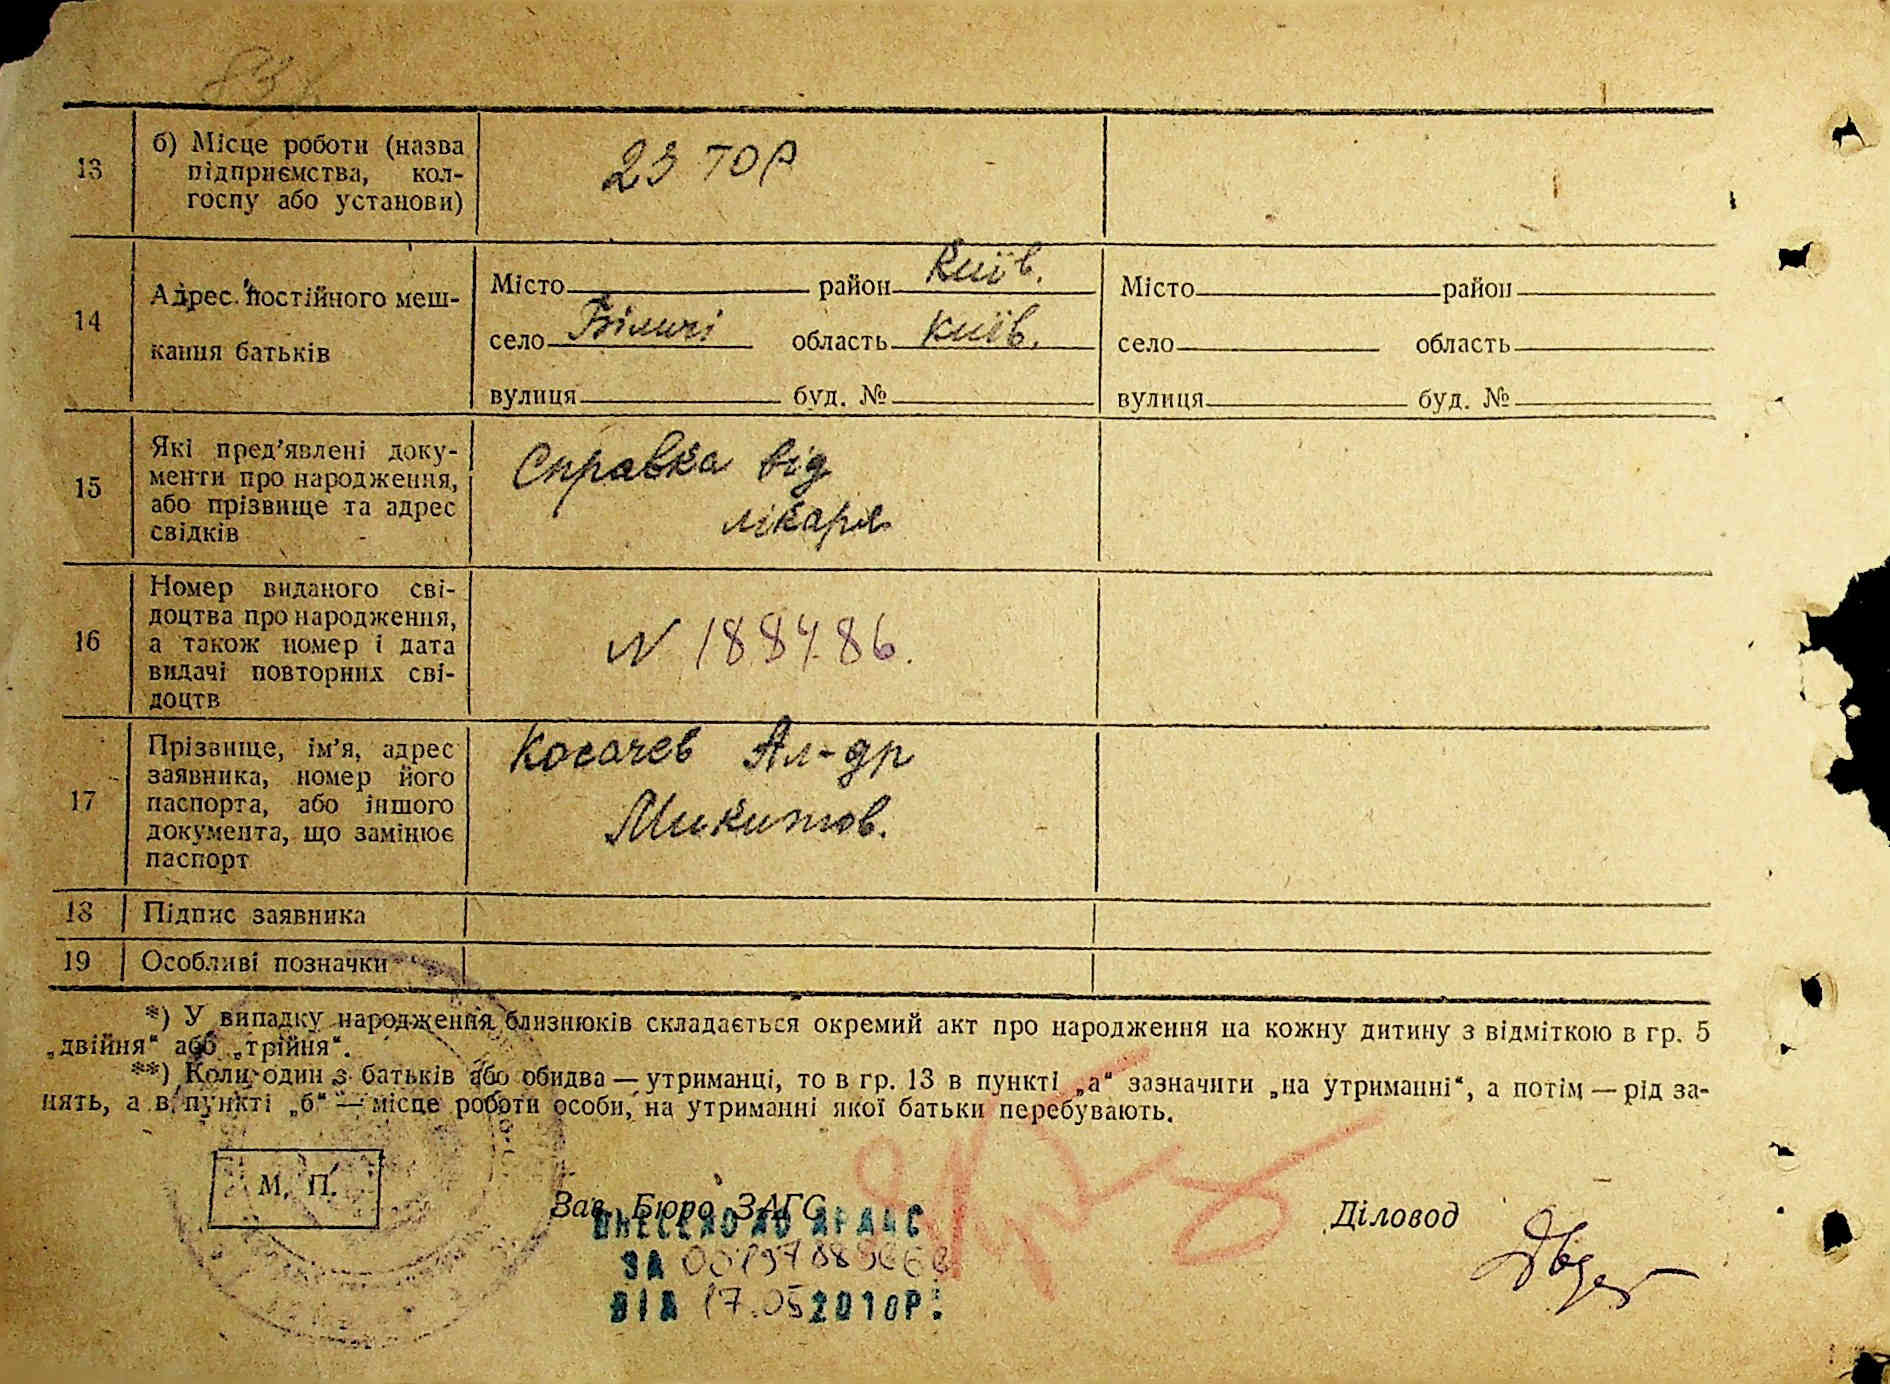 13
б) Місце роботи (назва
підприємства, кол-
госпу або установи)
23 ТОР
14
Адрес постійного меш-
кання батьків
Місто район Київ.
село Біличі область Київ.
вулиця буд. №
Місто район
село область
вулиця буд. №
15
Які пред’явлені доку-
менти про народження,
або прізвище та адрес
свідків
Справка від
лікаря
16
Номер виданого сві-
доцтва про народження,
а також номер і дата
видачі повторних сві-
доцтв
N 188486.
17
Прізвище, ім’я, адрес
заявника, номер його
паспорта, або іншого
документа, що замінює
паспорт
Косачев Ал-др
Микитов.
18
Підпис заявника
19
Особливі позначки
*) У випадку народження близнюків складається окремий акт про народження на кожну дитину з відміткою в гр. 5
„двійня“ або „трійня“.
**) Коли один з батьків або обидва — утриманці, то в гр. 13 в пункті „а“ зазначити „на утриманні“, а потім — рід за-
нять, а в пункті „б“ — місце роботи особи, на утриманні якої батьки перебувають.
М. П.
Зав. Бюро ЗАГС
Діловод
ВНЕСЕНО ДО ДРАЦС
ЗА
ВІД 17.05 2010Р.